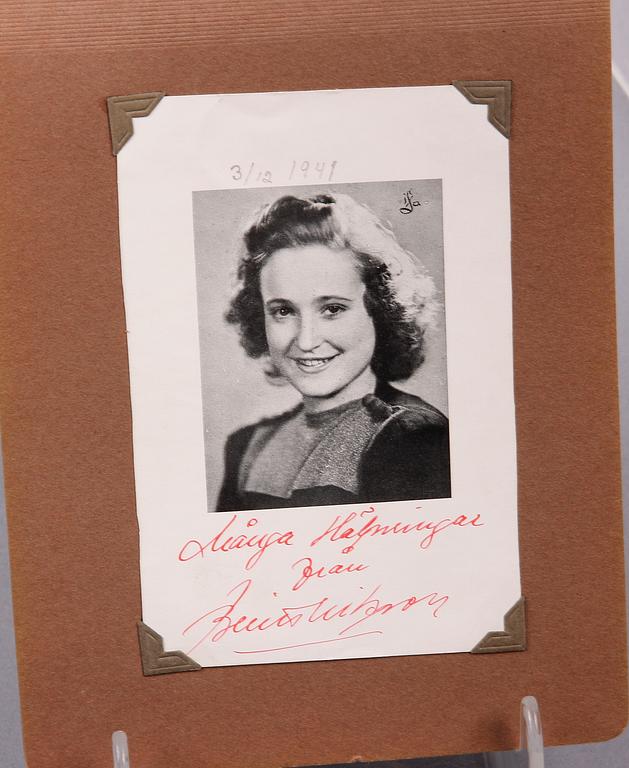 3/12 1941
Många Hälsningar
från